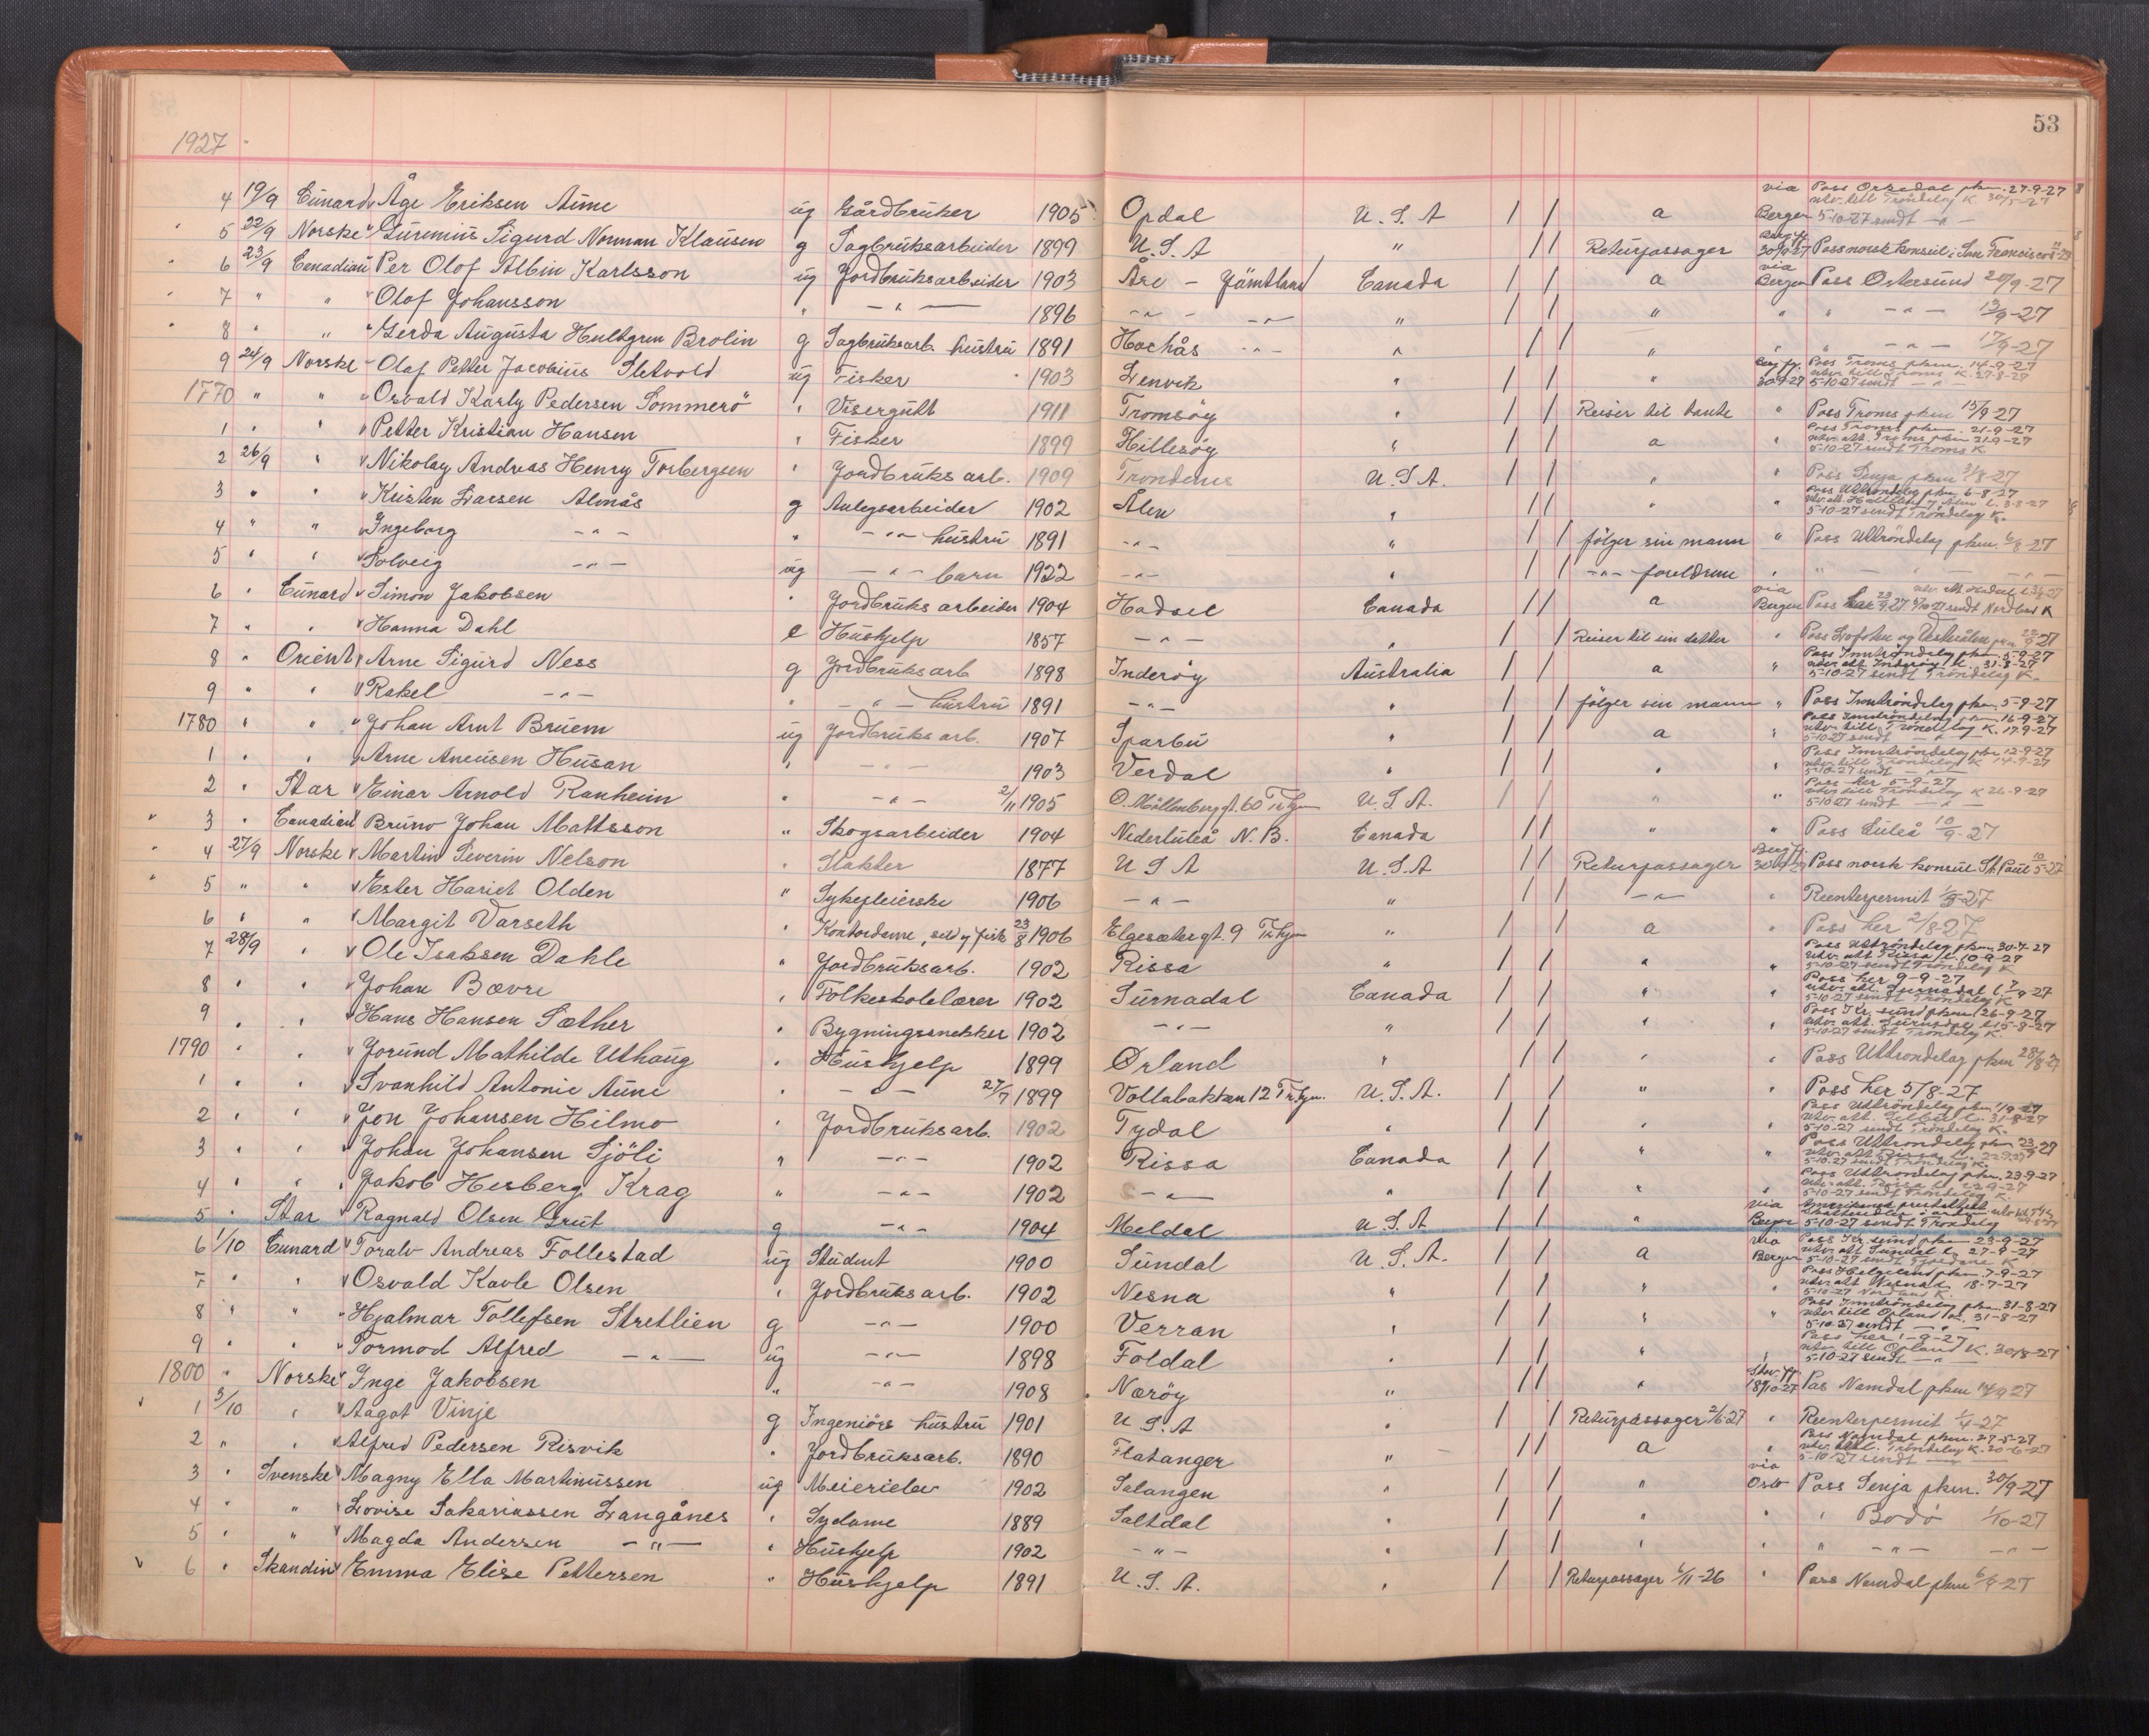 53
1927
4 19/9 Cunard Åge Eriksen Aune ug Gårdbruker 1905 Opdal U.S.A / / a via Bergen Pass Orkedal pkm. 27-9-27
5-10-27 sendt -"-
5 22/9 Norske Sigurd Norman Klausen g Sagbruksarbeider 1899 U.S.A " / / Returpassager Bergfj. 30/9-27 Pass norsk konsul i San Francisco
6 23/9 Canadian Per Olof Albin Karlsson ug Jordbruksarbeider 1903 Åre - Jämtland Canada / / a via Bergen Pass Østersund 20/9-27
7 " " Olof Johansson " -"- 1896 -"- -"- " / / " " " -"- 13/9-27
8 " " Gerda Augusta Hultgren Brolin g Sagbruksarb. hustru 1891 -"- " / / " " " -"- 17/9-27
9 24/9 Norske Olaf Petter Jacobius Sletvold ug Fisker 1903 Lenvik " / / " Bergfj. 30/9-27 Pass Troms pkm. 14-9-27
utv. till. Troms K. 27-8-27
5-10-27 sendt -"-
1770 " " Osvald Karly Pedersen Sommerø " Visergutt 1911 Tromsøy " / / Reiser til tante " Pass Troms pkm 15/9-27
1 " " Petter Kristian Hansen " Fisker 1899 Hillesøy " / / a " Pass Troms pkm. 21-9-27
utv. att. Troms pkm 21-9-27
5-10-27 sendt Troms K
2 26/9 " Nikolay Andreas Henry Torbergsen " Jordbruks arb. 1909 Trondenes U.S.A. / / " " Pass Senja pkm 31/8-27
3 " " Kristen Larsen Almås g Anlegsarbeider 1902 Ålen " / / " " Pass Uttrøndelag pkm 6-8-27
5-10-27 sendt Trøndelag K.
4 " " Ingeborg -"- " -"- hustru 1891 -"- " / / følger sin mann " Pass Uttrøndelag pkm. 6/8-27
5 " " Solveig -"- ug -"- barn 1922 -"- " / / -"- foreldrene " " -"-
6 " Cunard Simon Jakobsen " Jordbruks arbeider 1904 Hadsel Canada / / a via Bergen Pass her 23/9-27 sendt Nordland K
7 " " Hanna Dahl e Hushjelp 1857 -"- " / / Reiser til sin datter " Pass Lofoten og Vesterålen pkm 22/9-27
8 " Orient Arne Sigurd Ness g Jordbruksarb 1898 Inderøy Australia / / a " Pass Inntrøndelag pkm. 5-9-27
utv. att. Inderøy l. 31-8-27
5-10-27 sendt Trøndelag K.
9 " " Rakel -"- " -"- hustru 1891 -"- " / / følger sin mann " Pass Inntrøndelag pkm. 5-9-27
1780 " " Johan Arnt Bruem ug Jordbruks arb. 1907 Sparbu " / / a " Pass Inntrøndelag pkm. 16-9-27
utv. till. Trøndelag K. 17-9-27
5-10-27 sendt -"-
1 " " Arne Aneusen Husan " -"- 1903 Verdal " / / " " Pass Inntrøndelag pkm 12-9-27
utv. till Trøndelag K 14-9-27
5-10-27 sendt -"-
2 " Star Einar Arnold Ranheim " -"- 2/11 1905 O. Møllenberg gt. 60 Tr.hjem U.S.A. / / " " Pass her 5-9-27
utv. till Trøndelag K 26-9-27
5-10-27 sendt -"-
3 " Canadian Bruno Johan Mattsson " Skogsarbeider 1904 Nederluleå N.B. Canada / / " " Pass Luleå 10/9-27
4 27/9 Norske Martin Severin Nelson " Slakter 1877 U S A U.S.A / / Returpassager Bergfj. 30/9-27 Pass norsk konsul St. Paul 10/5-27
5 " " Ester Hariet Olden " Sykepleierske 1906 -"- " / / -"- " Reenterpermit 1/3-27
6 " " Margit Varseth " Kontordame, sild og fisk 23/8 1906 Elgesætergt. 9 Tr.hjem " / / a " Pass her 2/8-27
7 28/9 " Ole Isaksen Dahle " Jordbruksarb. 1902 Rissa " / / " " Pass Uttrøndelag pkm. 30-7-27
utv. att Rissa l. 10-9-27
5-10-27 sendt Trøndelag K
8 " " Johan Bævre " Folkeskolelærer 1902 Surnadal Canada / / " " Pass her 9-9-27
utv. att. Surnadal l. 7/9-27
5-10-27 sendt Trøndelag K
9 " " Hans Hansen Sæther " Bygningssnekker 1902 -"- " / / " " Pass Kr. sund pkm 26-9-27
utv. att. Surnadal l 15-8-27
5-10-27 sendt Trøndelag K.
1790 " " Jorund Mathilde Uthaug " Hushjelp 1899 Ørland " / / " " Pass Uttrøndelag pkm 28/8-27
1 " " Svanhild Antonie Aune " -"- 27/7 1899 Vollabakken 12 Tr.hjem. U.S.A. / / " " Pass her 5/8-27
2 " " Jon Johansen Hilmo " Jordbruksarb. 1902 Tydal " / / " " Pass Uttrøndelag pkm 1/9-27
utv. att. Selbu l. 31-8-27
5-10-27 sendt Trøndelag K.
3 " " Johan Johansen Sjöli " -"- 1902 Rissa Canada / / " " Pass Uttrøndelag pkm 23/9-27
utv. att Rissa l.
5-10-27 sendt Trøndelag K.
4 " " Jakob Hesberg Krag " -"- 1902 -"- " / / " " Pass Uttrøndelag pkm. 23-9-27
utv. att. Rissa l. 22-9-27
5-10-27 sendt Trøndelag K.
5 " Star Ragnald Olsen Grut g -"- 1904 Meldal U.S.A / / " via Bergen
5-10-27 sendt Trøndelag
6 1/10 Cunard Toralv Andreas Follestad ug Student 1900 Sundal U.S.A. / / a via Bergen Pass Kr. sund pkm 23-9-27
utv. att Sundal l. 27-9-27
5-10-27 sendt
7 " " Osvald Kavle Olsen " Jordbruksarb. 1902 Nesna " / / " " Pass Helgeland pkm. 7-9-27
utv. att Nesna l. 18-7-27
5-10-27 Nordland K.
8 " " Hjalmar Tollefsen Stretlien g -"- 1900 Verran " / / " " Pass Inntrøndelag pkm. 31-8-27
utv. till Opland K. 31-8-27
5-10-27 sendt -"-
9 " " Tormod Alfred -"- ug -"- 1898 Foldal " / / " " Pass her 1-9-27
utv. till Opland K. 30/8-27
5-10-27 sendt -"-
1800 " Norske Inge Jakobsen " -"- 1908 Nærøy " / / " 18/10-27 Pas Namdal pkm 14/9 27
1 3/10 " Aagot Vinje g Ingeniørs hustru 1901 U.S.A " / / Returpassager 2/6-27 " Reenterpermit 1/4-27
2 " " Alfred Pedersen Risvik " Jordbruksarb. 1890 Flatanger " / / a " Pass Namdal pkm. 27-5-27
utv. till. Trøndelag K. 20-6-27
5-10-27 sendt
3 " Svenske Magny Ella Martinussen ug Meierielev 1902 Salangen " / / " via Oslo Pass Senja pkm. 30/9-27
4 " " Lovise Sakariassen Langånes " Sydame 1889 Saltdal " / / " " " Bodø 1/10-27
5 " " Magda Andersen -"- " Hushjelp 1902 -"- " / / " " " -"- -"-
6 " Skandin Emma Elise Pettersen " Hushjelp 1891 U.S.A. " / / Returpassager 6/11-26 " Pass Namdal pkm 6/9-27